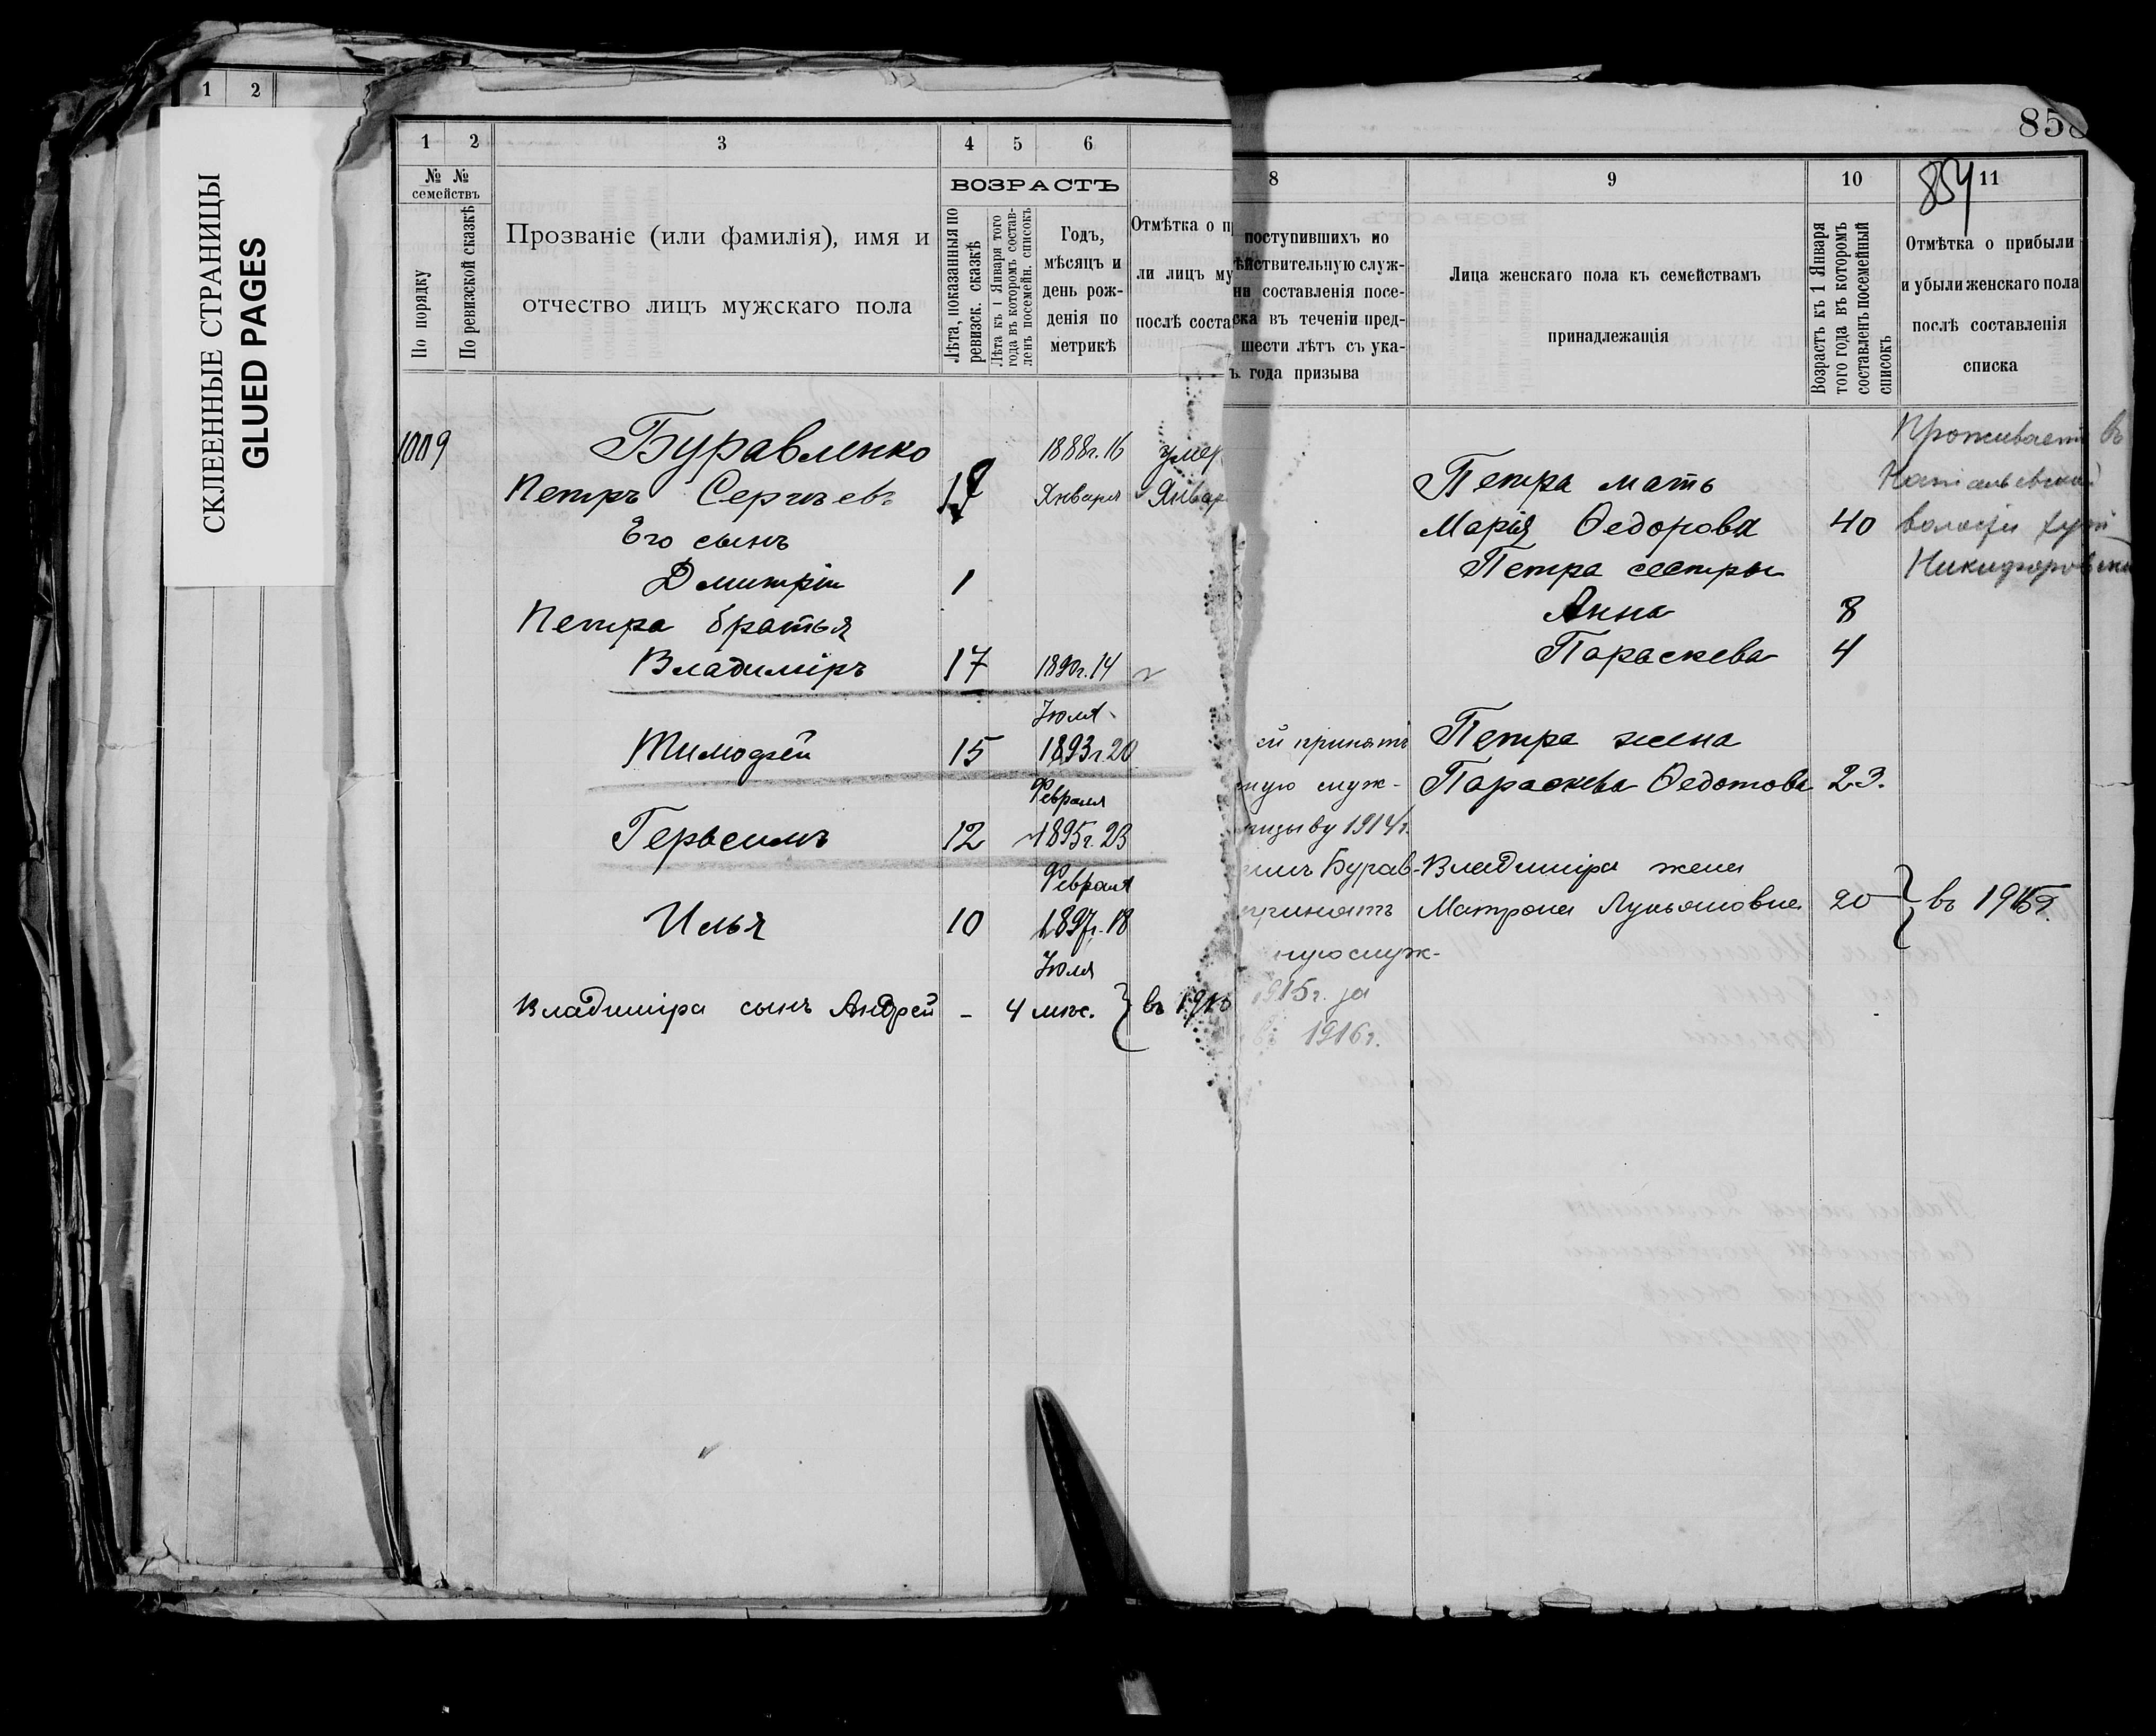 1 2
СКЛЕЕННЫЕ СТРАНИЦЫ
GLUED PAGES
1 2 3 4 5 6
№ № семействъ
По порядку
По ревизской сказкѣ
Прозваніе (или фамилія), имя и
отчество лицъ мужскаго пола
ВОЗРАСТЪ
Лѣта, показанныя по
ревизск. сказкѣ
Лѣта къ 1 Января того
года въ которомъ состав-
ленъ посемейн. списокъ
Годъ,
мѣсяцъ и
день рож-
денія по
метрикѣ
Отмѣтка о п
ли лицъ му
послѣ соста
1009
Буравленко 1888г. 16 умер
Петръ Сергѣевъ Января Январ
Его сынъ
Дмитрій 1
Петра братья
Владиміръ 17 1890г. 14
Іюля
Тимофей 15 1893г. 20
Февраля
Герасимъ 12 1895г. 23
Февраля
Илья 10 1897г. 18
Іюля
Владиміра сынъ Андрей - 4 мѣс. въ
858
854
8 9 10 11
поступившихъ но
ѣйствительную служ-
ни составленія посе-
ска въ теченіи пред-
шести лѣтъ съ ука-
ъ года призыва
Лица женскаго пола къ семействамъ
принадлежащія
Возрастъ къ 1 Января
того года въ которомъ
составленъ посемейный
списокъ
Отмѣтка о прибыли
и убыли женскаго пола
послѣ составленія
списка
Проживаетъ въ
Петра мать
Марія Ѳедорова 40 волости хут
Петра сестры Никифоров
Анна 8
Параскева 4
й принятъ Петра жена
ную служ- Параскева Ѳедотова 23.
призыву 1914г.
Бурав- Владиміра жена
принятъ Матрона Лукьяновна 20 въ
ную служ-
1915г. за
въ 1916г.